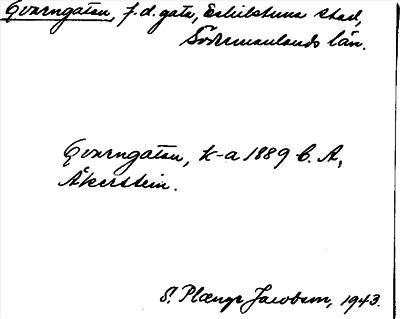 Qvarngatan, f.d. gata, Eskilstuna stad,
Södermanlands län.
Qvarngatan, k-a 1889 C. A,
Åkerstein.
S. Jacobson, 1943.